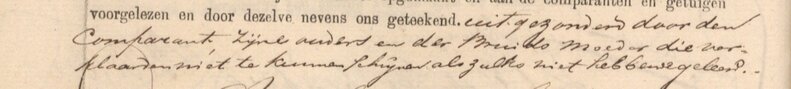 opgemaakt en aan de comparanten en getuigen
voorgelezen en door dezelve nevens ons geteekend. uitgezonderd door den
Comparant zijne ouders en der Bruids moeder die ver-
klaarden niet te kunnen schrijven als zulks niet hebbende geleerd.